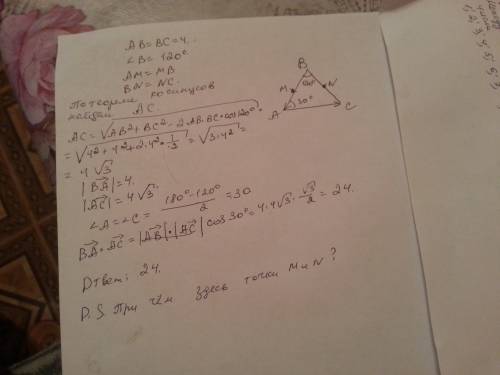 AB=BC=4.
∠B=120°
AM=MB
BN=NC.
По теореме косинусов
найдём AC.
AC=√AB²+BC²-2AB·BC·cos120°=
=√4²+4²+2·4²·1/2=√3·4²=
=4√3
|BA|=4.
|AC|=4√3.
∠A=∠C=(180°-120°)/2=30
BA·AC=|AB|·|AC|cos30°=4·4√3·√3/2=24.
Ответ: 24.
P.S При чём здесь точки M и N?
B
M
N
120°
A
30°
C